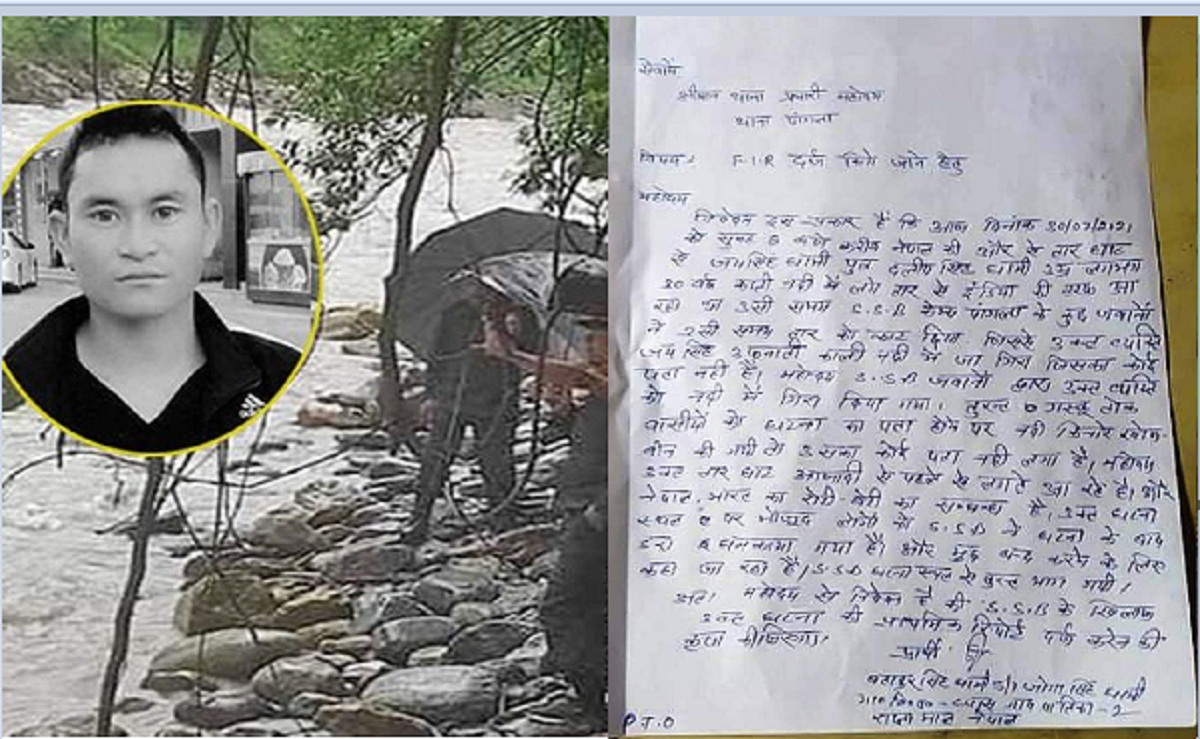 सेवामें
श्रीमान थाना प्रभारी महोदय
थाना पांगला
विषय:- F.I.R दर्ज किये जाने हेतु
महोदय
निवेदन इस प्रकार है कि आज दिनांक 30/07/2021
को सुबह 8 बजे करीब नेपाल की ओर के तार घाट
से जयसिंह धामी पुत्र दलीप सिंह धामी उम्र लगभग
30 वर्ष काली नदी में लगे तार से इंडिया की तरफ आ
रहा था उसी समय S.S.B कैम्प पांगला के कुछ जवानों
ने उसी समय तार को काट दिया जिससे उक्त व्यक्ति
जय सिंह उफनाती काली नदी में जा गिरा जिसका कोई
पता नहीं है। महोदय S.S.B जवानों द्वारा उक्त व्यक्ति
को नदी में गिरा दिया गया। तुरन्त गस्कू तोक
वासीयों को घटना का पता होने पर नदी किनारे खोज-
बीन की गयी तो उसका कोई पता नहीं लगा है। महोदय
उक्त तार घाट आजादी से पहले से लगाते आ रहे है। और
नेपाल-भारत का रोटी-बेटी का सम्बन्ध है। उक्त घटना
स्थल पर मौजूद लोगों को S.S.B ने घटना के बाद
डरा धमकाया गया है। और मुंह बन्द करने के लिए
कहा जा रहा है। S.S.B घटना स्थल से तुरन्त भाग गयी।
अतः महोदय से निवेदन है की S.S.B के खिलाफ
उक्त घटना की प्राथमिक रिपोर्ट दर्ज करने की
कृपा कीजिएगा।
प्रार्थी
बहादुर सिंह धामी S/o जोगा सिंह धामी
व्यास गांव पालिका - 2
नेपाल
P.T.O